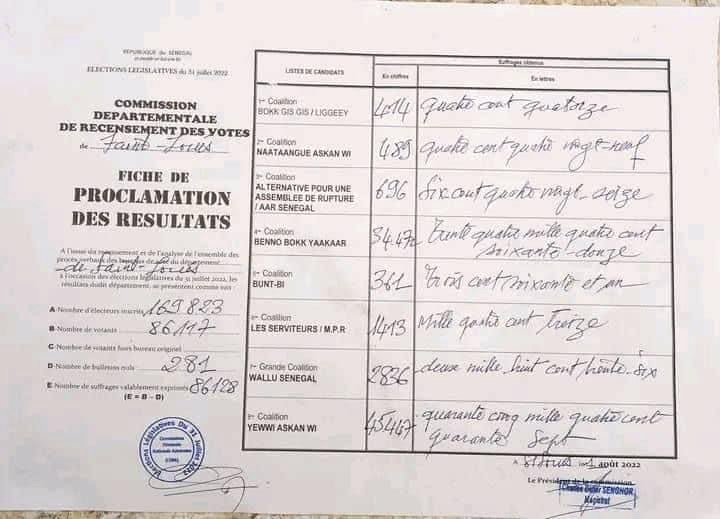 REPUBLIQUE du SENEGAL
ELECTIONS LEGISLATIVES du 31 juillet 2022
COMMISSION
DEPARTEMENTALE
DE RECENSEMENT DES VOTES
de Saint-Louis
FICHE DE
PROCLAMATION
DES RESULTATS
A l'issue du recensement et de l'analyse de l'ensemble des
procès-verbaux des bureaux de vote du département
de Saint-Louis
à l'occasion des élections législatives du 31 juillet 2022, les
résultats dudit département, se présentent comme suit :
A- Nombre d'électeurs inscrits 169 823
B- Nombre de votants 86 117
C- Nombre de votants hors bureau originel
D- Nombre de bulletins nuls 281
E- Nombre de suffrages valablement exprimés 86128
(E = B - D)
Elections Législatives Du 31 Juillet 2022
Commission
Nationale
LISTES DE CANDIDATS
Suffrages obtenus
En chiffres
En lettres
1ère Coalition
BOKK GIS GIS / LIGGEEY
414
quatre cent quatorze
2ème Coalition
NAATAANGUE ASKAN WI
489
quatre cent quatre vingt-neuf
3ème Coalition
ALTERNATIVE POUR UNE
ASSEMBLEE DE RUPTURE
/ AAR SENEGAL
696
Six cent quatre vingt-seize
4ème Coalition
BENNO BOKK YAAKAAR
34.472
Trente quatre mille quatre cent
soixante-douze
5ème Coalition
BUNT-BI
361
Trois cent soixante et un
6ème Coalition
LES SERVITEURS / M.P.R
1413
Mille quatre cent treize
7ème Grande Coalition
WALLU SENEGAL
2836
deux mille huit cent trente-six
8ème Coalition
YEWWI ASKAN WI
45447
quarante cinq mille quatre cent
quarante sept
A St Louis le 1 août 2022
Le Président de la commission
SENGHOR
Magistrat